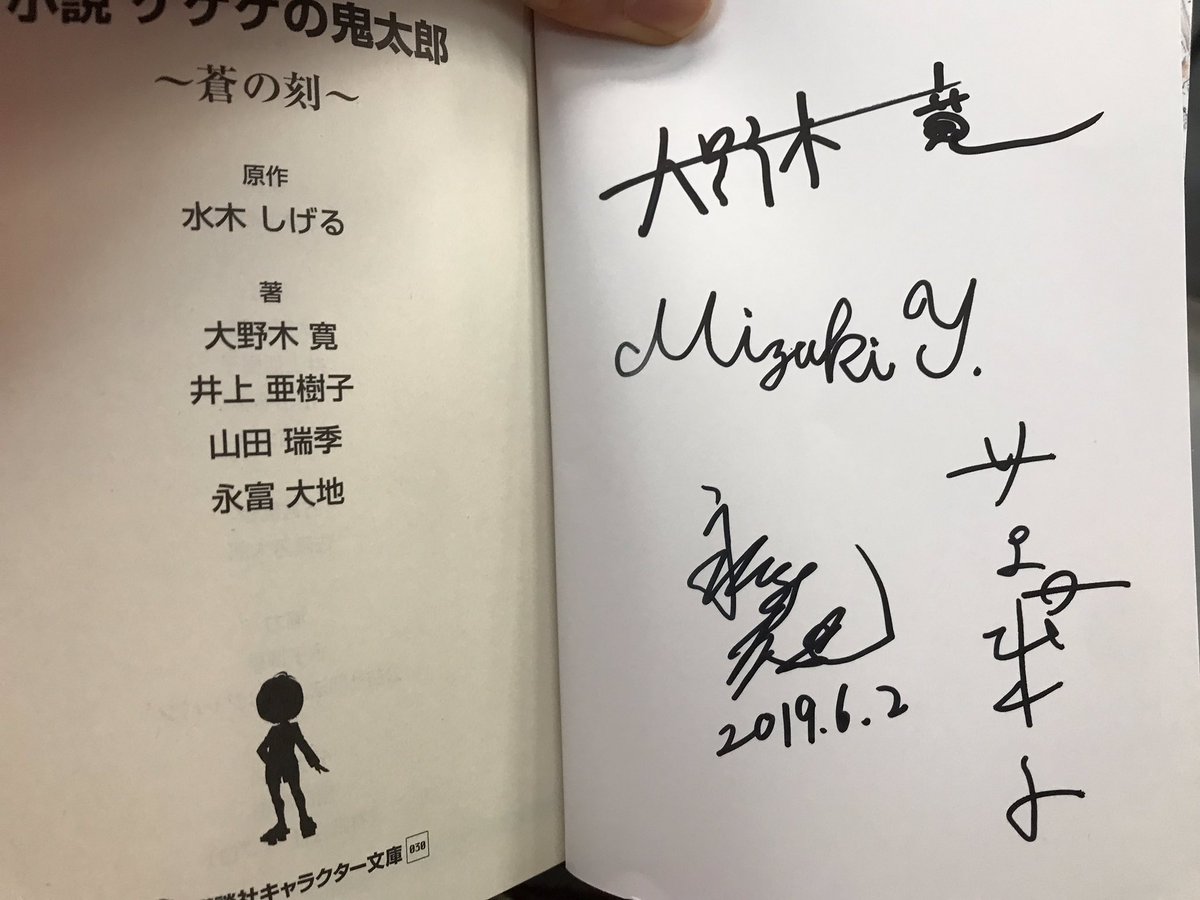 小説 ゲゲゲの鬼太郎
～蒼の刻～
原作
水木 しげる
著
大野木 寛
井上 亜樹子
山田 瑞季
永富 大地
談社キャラクター文庫 030
大野木 寛
Mizuki Y.
井上亜樹子
永富大地
2019.6.2